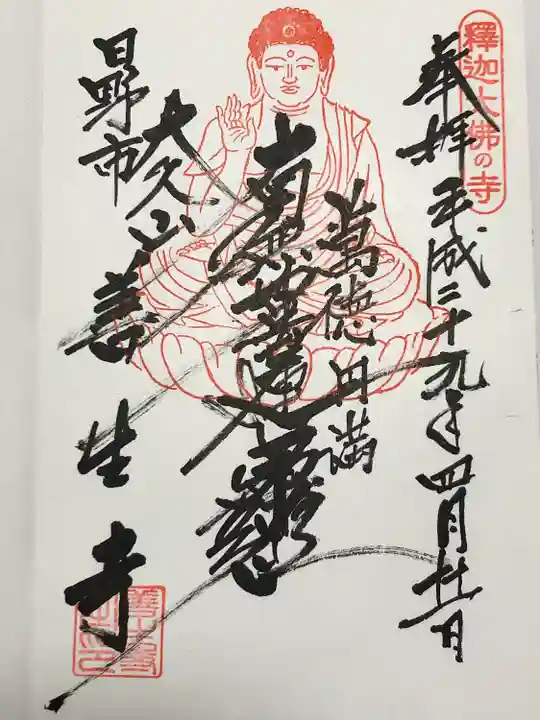 釋迦大佛の寺
奉拝 平成二十九年四月廿一日
萬徳円満
南無妙法蓮華経
大久山善生寺
日野市